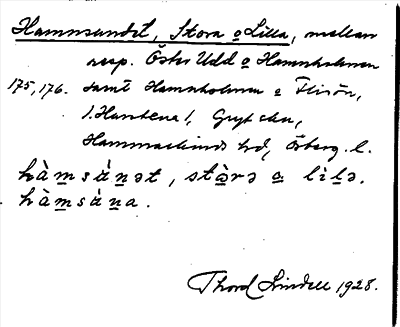 Hamnsundet, Stora o Lilla, mellan
resp. Öster Udd o Hamnholmen
175,176. samt Hamnholmen o Flisön,
Gryt sn,
Hammarkinds hd, Österg. l.
hàmsánət, stàrə a lilə.
hàmsána.
Thord Lindell 1928.